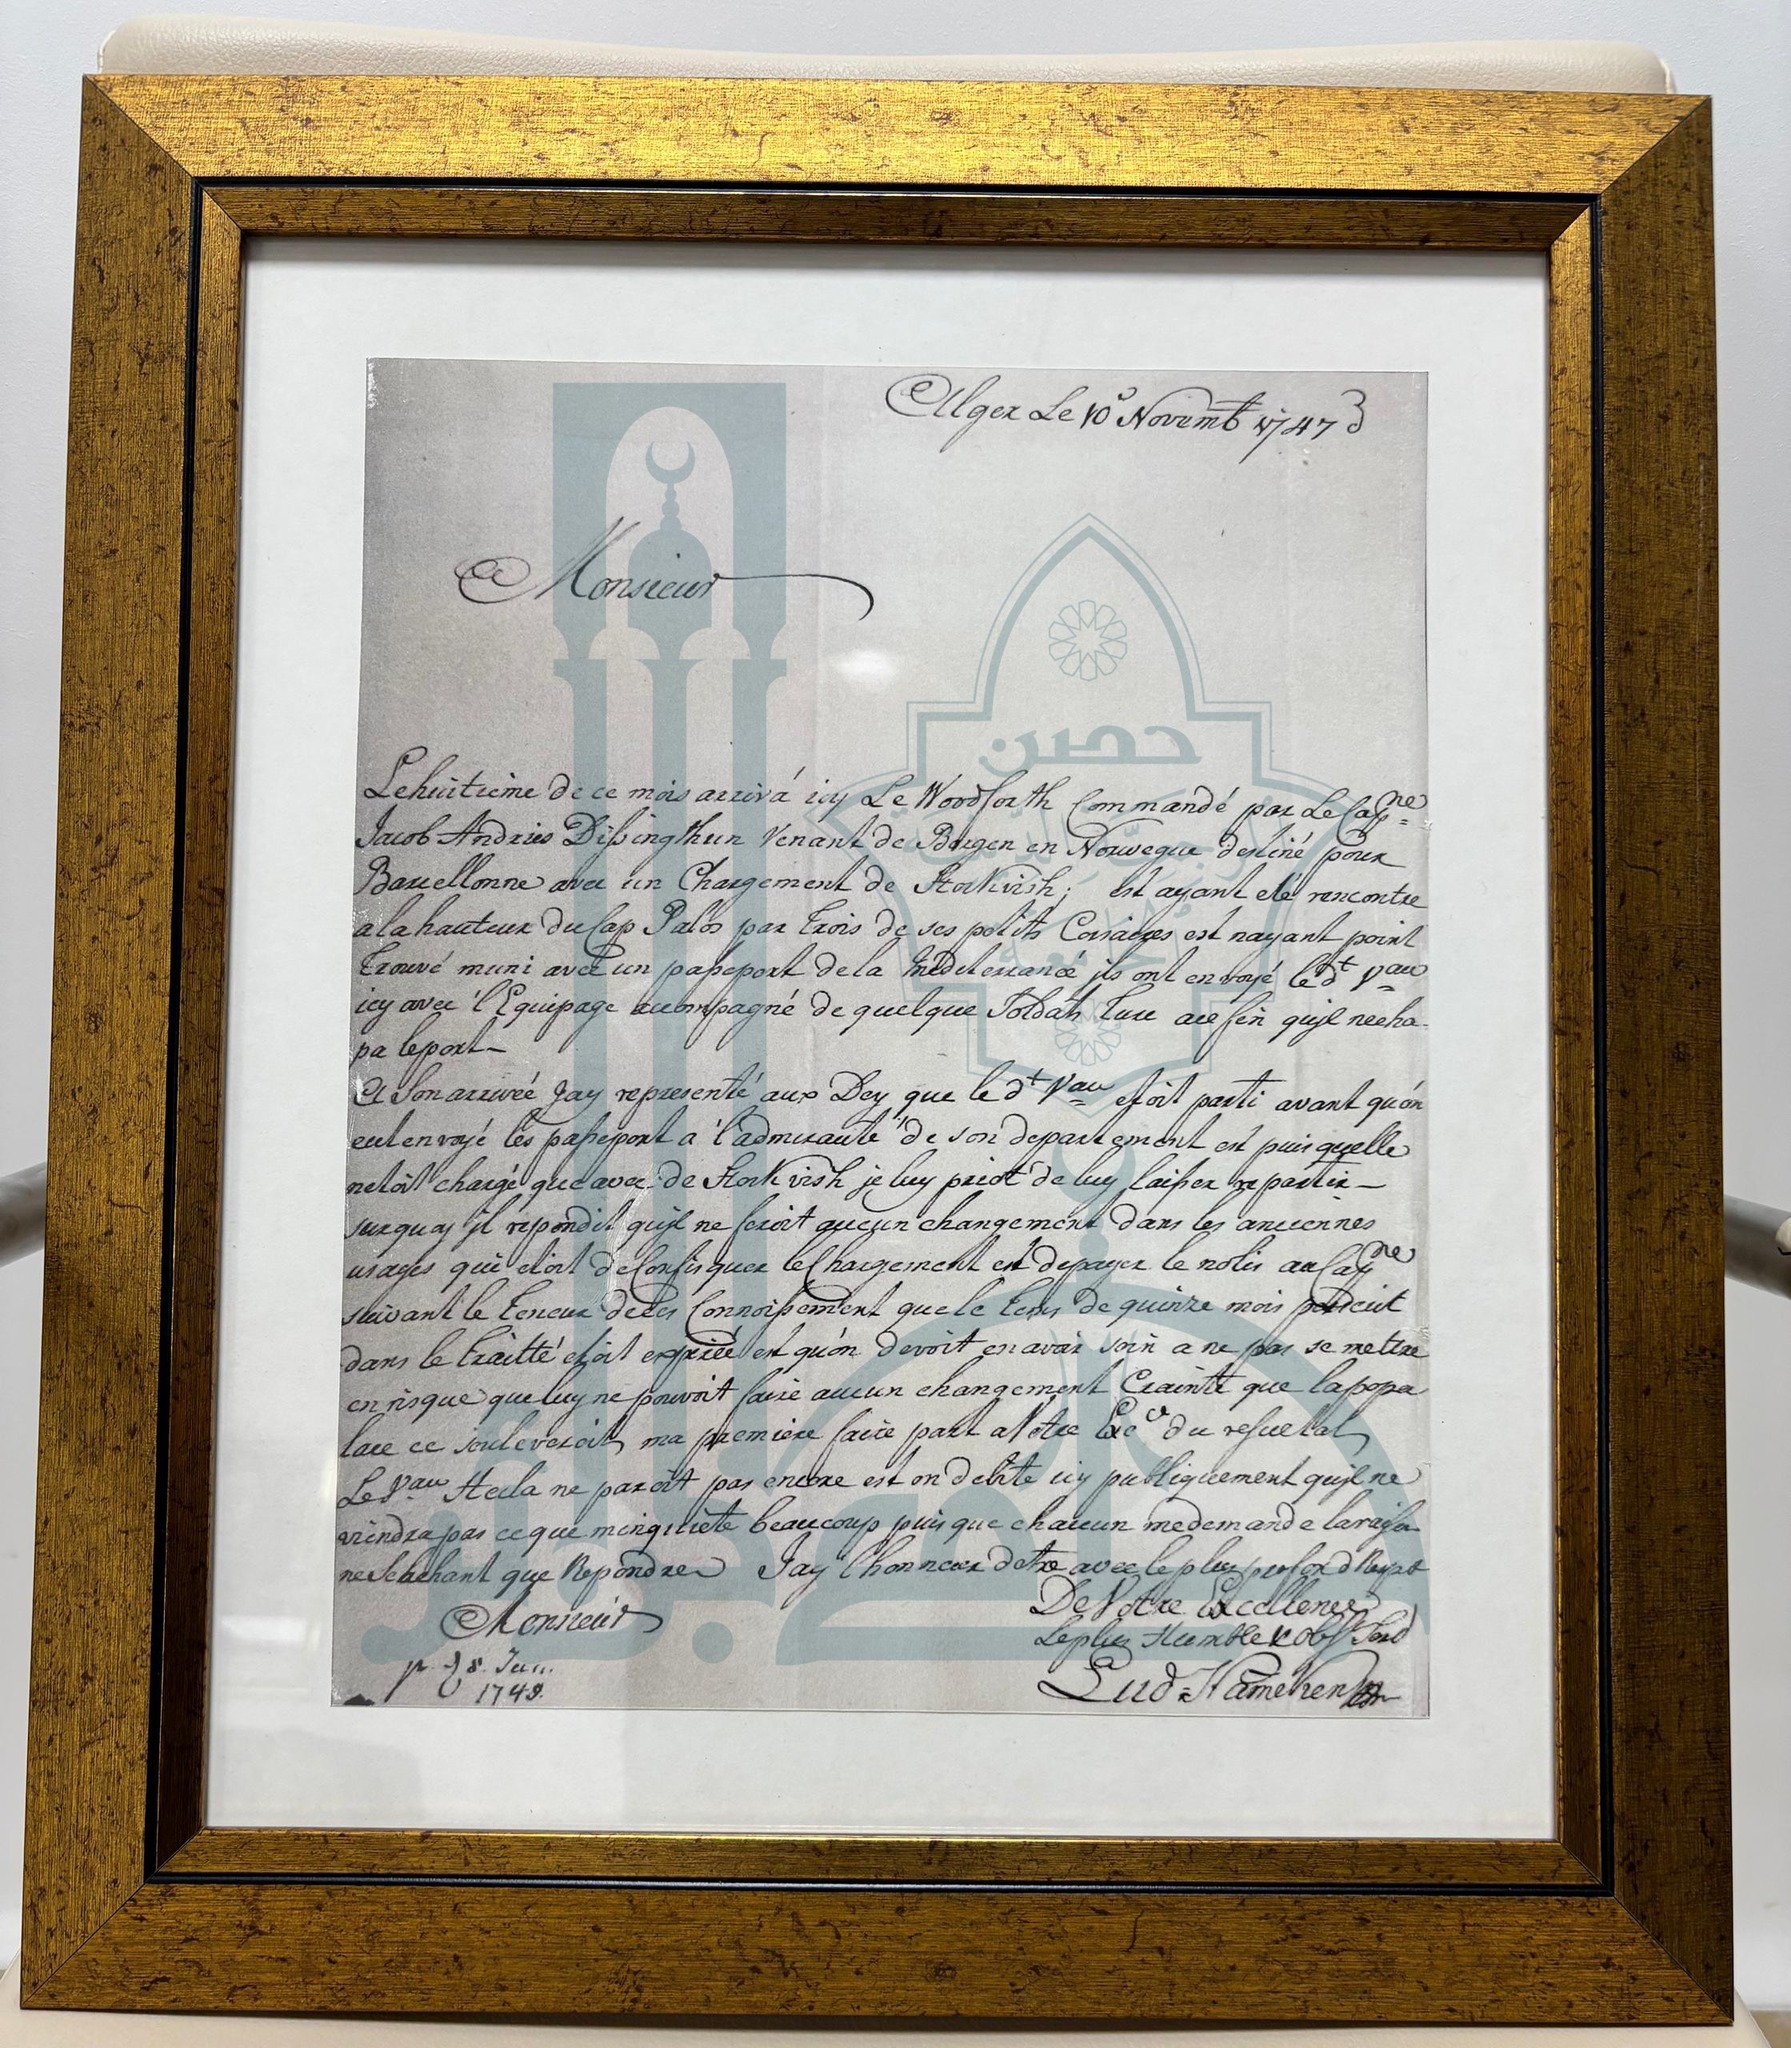 Alger Le 10 Novemb 1747
Monsieur
حصن
Le huitieme de ce mois arriva icy Le Woodforth Commandé par Le Capne
Jacob Andries Venant de Bergen en Norwegue destiné pour
Barcellonne avec un Chargement de Stokvish; est ayant eté rencontre
a la hauteur du Cap Palos par trois de ses petits Corsaires est nayant point
trouvé muni avec un passeport de la mediterrancé ils ont envoyé le dt Vau
icy avec l'Equipage acompagné de quelque Soldats Turc aufin quil necha-
pa le port
A Son arrivée Jay representé aux Dey que le dt Vau etoit parti avant qu'on
eut envoyé les passeport a l'admirauté de son departement est puis quelle
netoit chargé que avec de Stokvish je luy priot de luy laisser repartir
surquoy il repondit quil ne feroit aucun changement dans les anciennes
usages qui etoit de Confisquer le Chargement est de payer le nolis au Capne
suivant le teneur de les Connoissement que le tems de quinze mois
dans le traitté etoit expirée est qu'on devoit en avoir soin a ne pas se mettre
en risque que luy ne pouvoit faire aucun changement Crainte que la popu
lace ce souleveroit, ma premiere faire part a Votre Exce du resultat
Le Vau Hecla ne paroit pas encore est on debite icy publiquement quil ne
viendra pas ce que minquiete beaucoup puis que chacun me demande la raison
ne Sachant que Repondre Jay l'honneur detre avec le plus profond Respet
De Votre Excellence
Monsieur
Le plus Humble & obst Serv
Lud: Hameken
8 Jan.
1748.